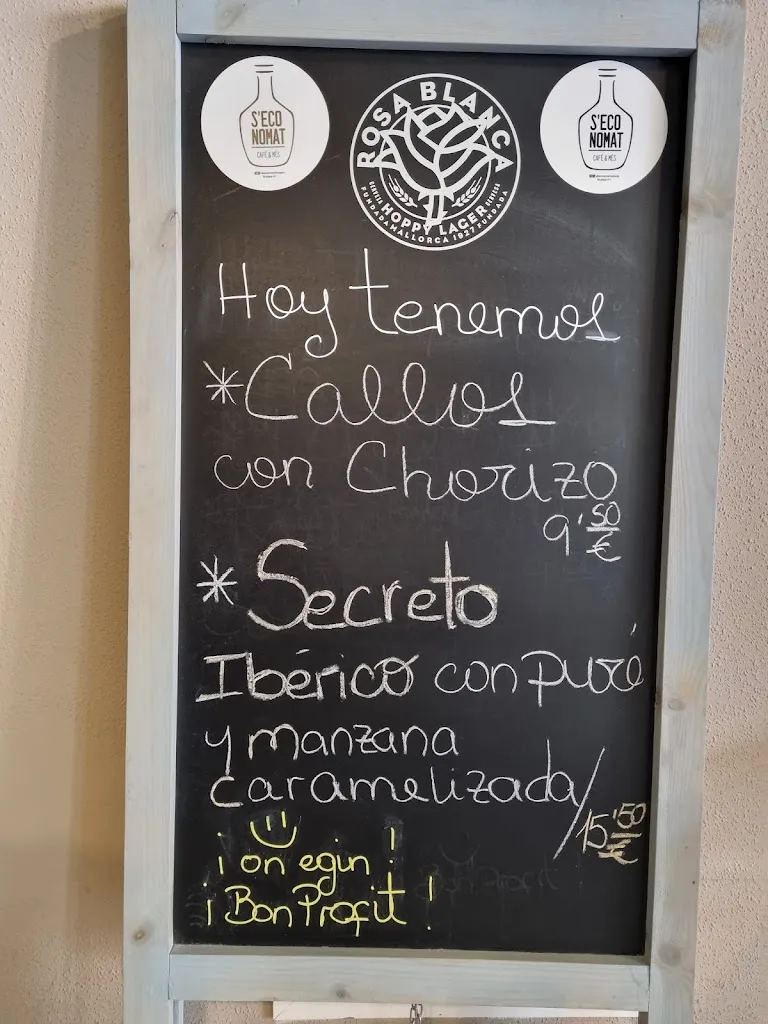 S'ECO
NOMAT
CAFÉ & MÉS
ROSA BLANCA
CERVESA CERVEZA
HOPPY LAGER
FUNDADA MALLORCA 1927 FUNDADA
S'ECO
NOMAT
CAFÉ & MÉS
Hoy tenemos
*Callos
con Chorizo
9'50
€
*Secreto
Ibérico con puré
y manzana
caramelizada/
15'50
€
¡on egin!
¡Bon Profit!